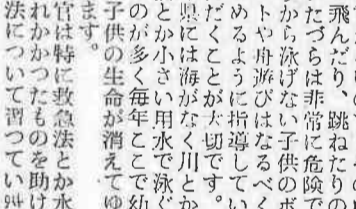 飛んだり、跳ねたりの
たづらは非常に危険で
から泳げない子供のボ
トや舟遊びはなるべく
めるように指導してい
だくことが大切です。
県には海がなく川とか
とか小さい用水で泳ぐ
のが多く毎年ここで幼
子供の生命が消えてゆ
ます。
官は特に救急法とか水
れかかつたものを助け
法について習つてい